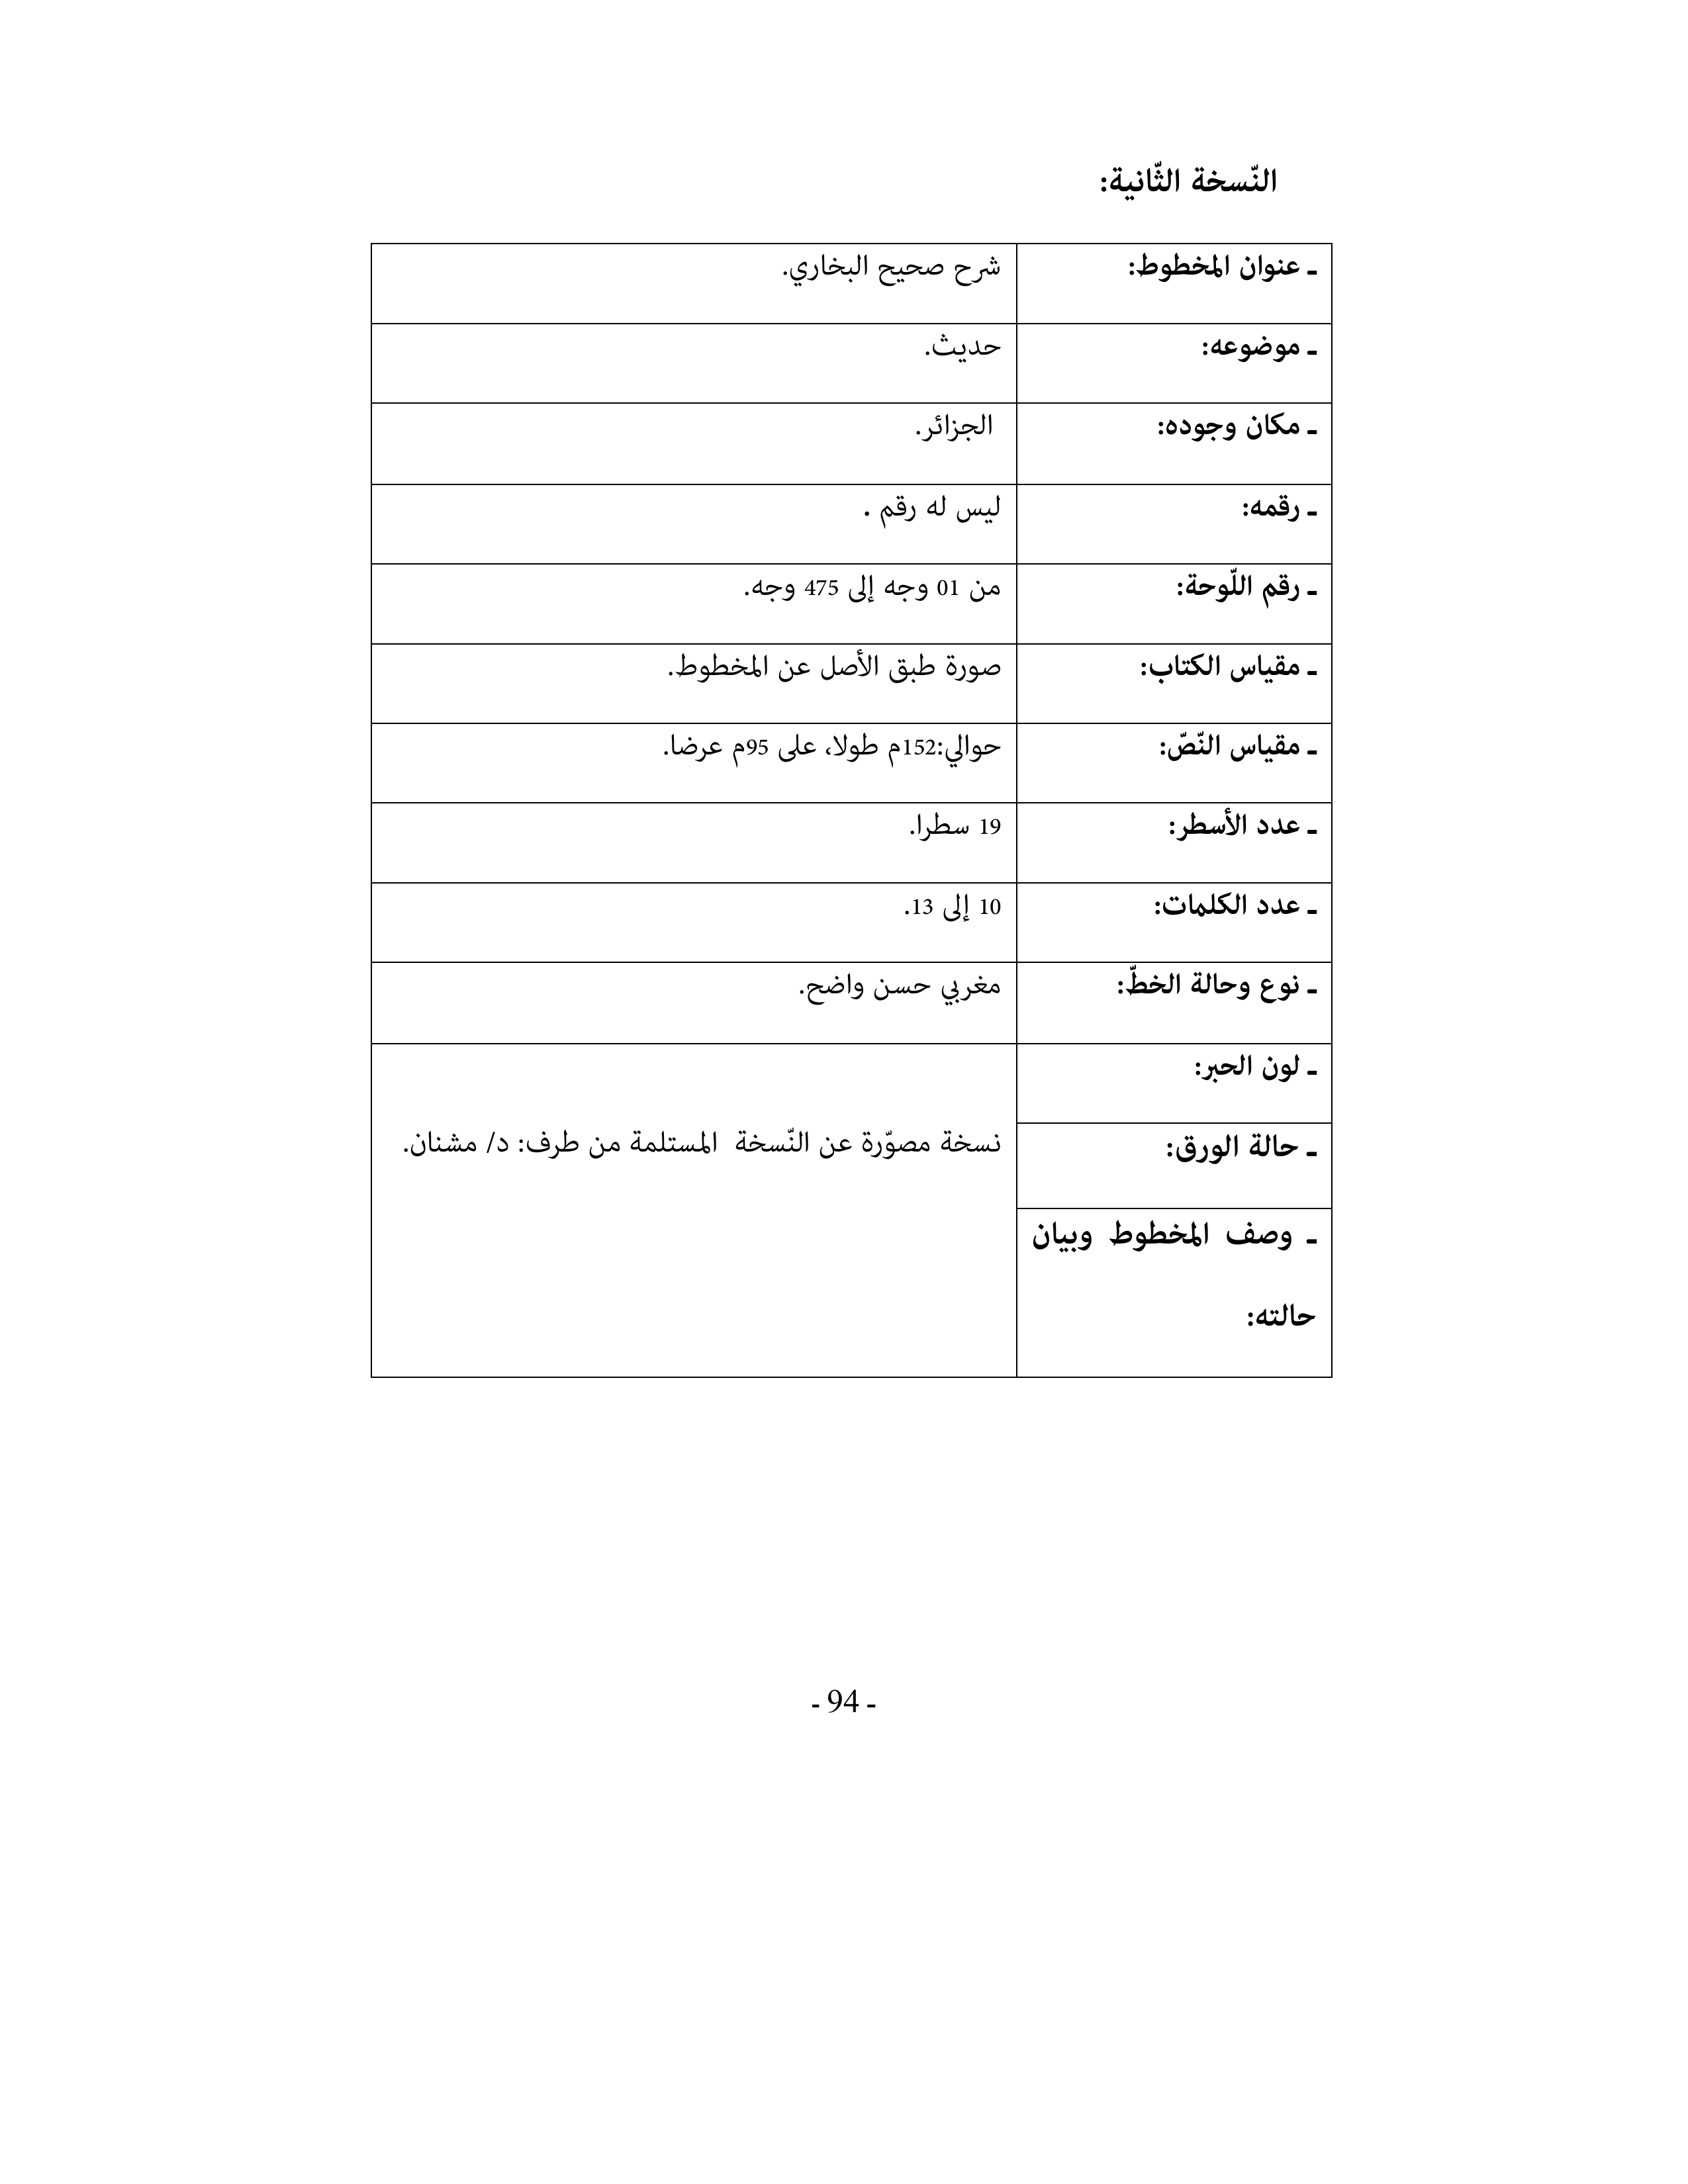 النّسخة الثّانية:
ـ عنوان المخطوط: شرح صحيح البخاري.
ـ موضوعه: حديث.
ـ مكان وجوده: الجزائر.
ـ رقمه: ليس له رقم .
ـ رقم اللّوحة: من 01 وجه إلى 475 وجه.
ـ مقياس الكتاب: صورة طبق الأصل عن المخطوط.
ـ مقياس النّصّ: حوالي:152م طولا، على 95م عرضا.
ـ عدد الأسطر: 19 سطرا.
ـ عدد الكلمات: 10 إلى 13.
ـ نوع وحالة الخطّ: مغربي حسن واضح.
ـ لون الحبر:
ـ حالة الورق: نسخة مصوّرة عن النّسخة المستلمة من طرف: د/ مشنان.
ـ وصف المخطوط وبيان
حالته:
- 94 -